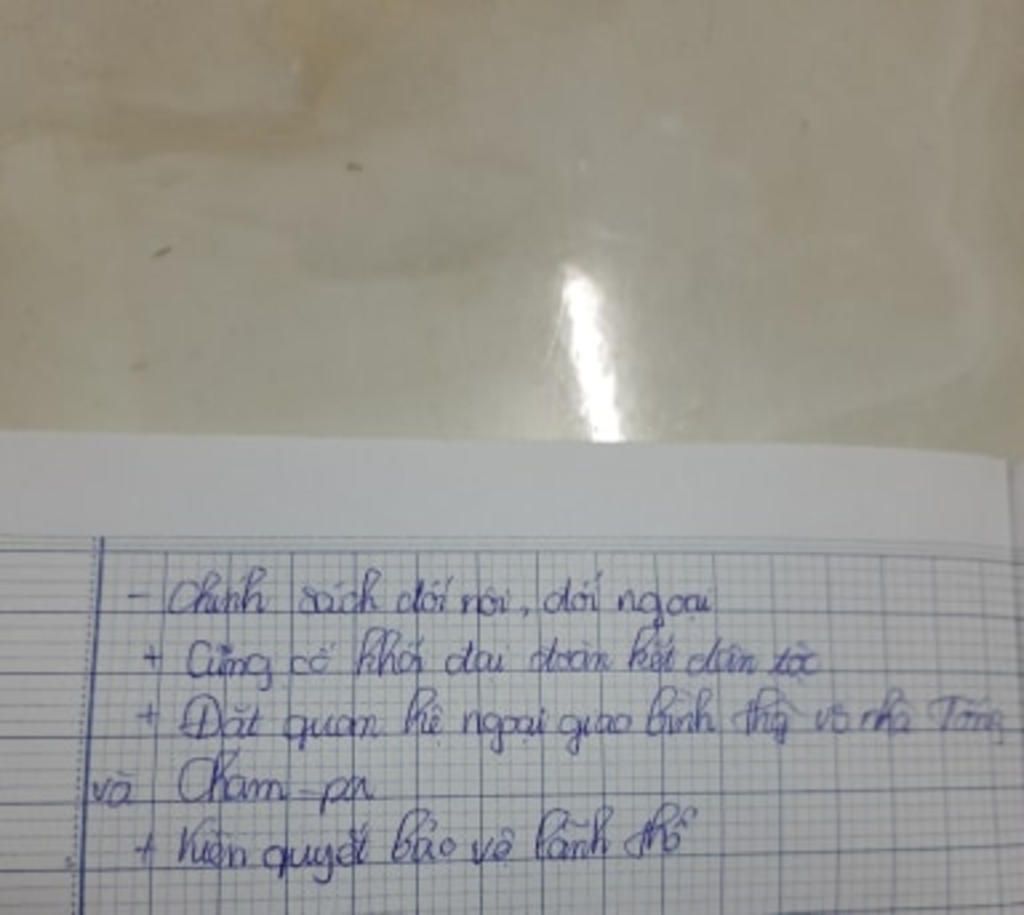 - Chính sách đối nội, đối ngoại
+ Củng cố khối đại đoàn kết dân tộc
+ Đặt quan hệ ngoại giao bình thg vs nhà Tống
và Cham-pa
+ Kiên quyết bảo vệ lãnh thổ